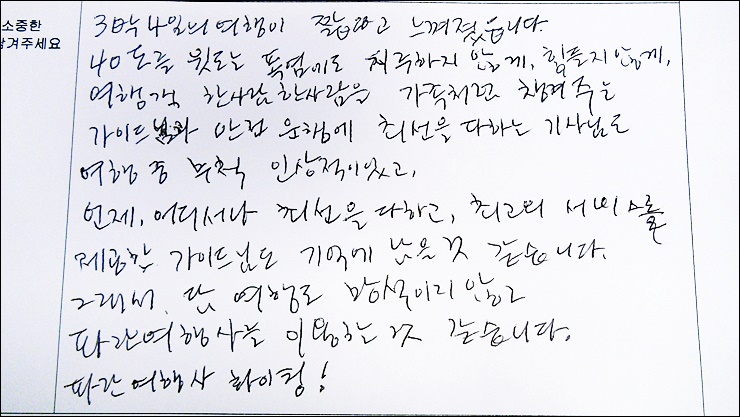 소중한
남겨주세요
3박4일의 여행이 짧다고 느껴졌습니다.
40도를 윗도는 폭염에도 지루하지 않게, 힘들지 않게,
여행객 한사람 한사람을 가족처럼 챙겨주는
가이드님과 안전 운행에 최선을 다하는 기사님도
여행 중 무척 인상적이었고,
언제, 어디서나 최선을 다하고, 최고의 서비스를
제공한 가이드님도 기억에 남을 것 같습니다.
그래서 담 여행도 망설이지 않고
파란여행사를 이용하는 것 같습니다.
파란여행사 화이팅!